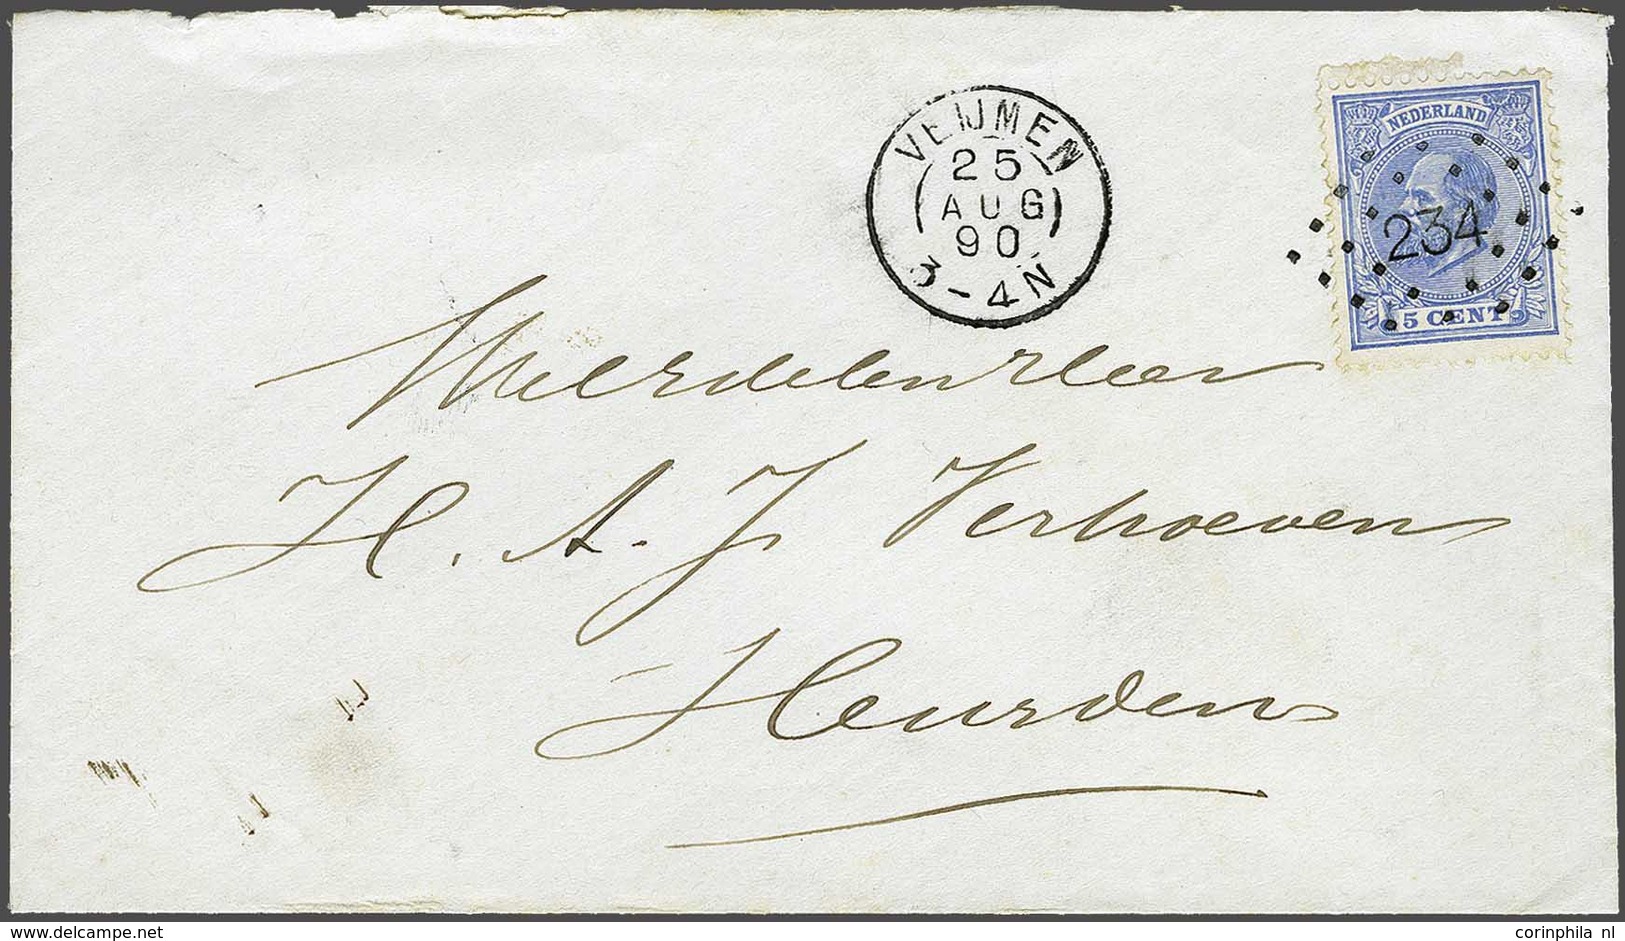 VEIJMEN
25
AUG
90
3-4N
NEDERLAND
234
5 CENT
H. A. J. Verhoeven
Heusden
delcampe.net
corinphila nl